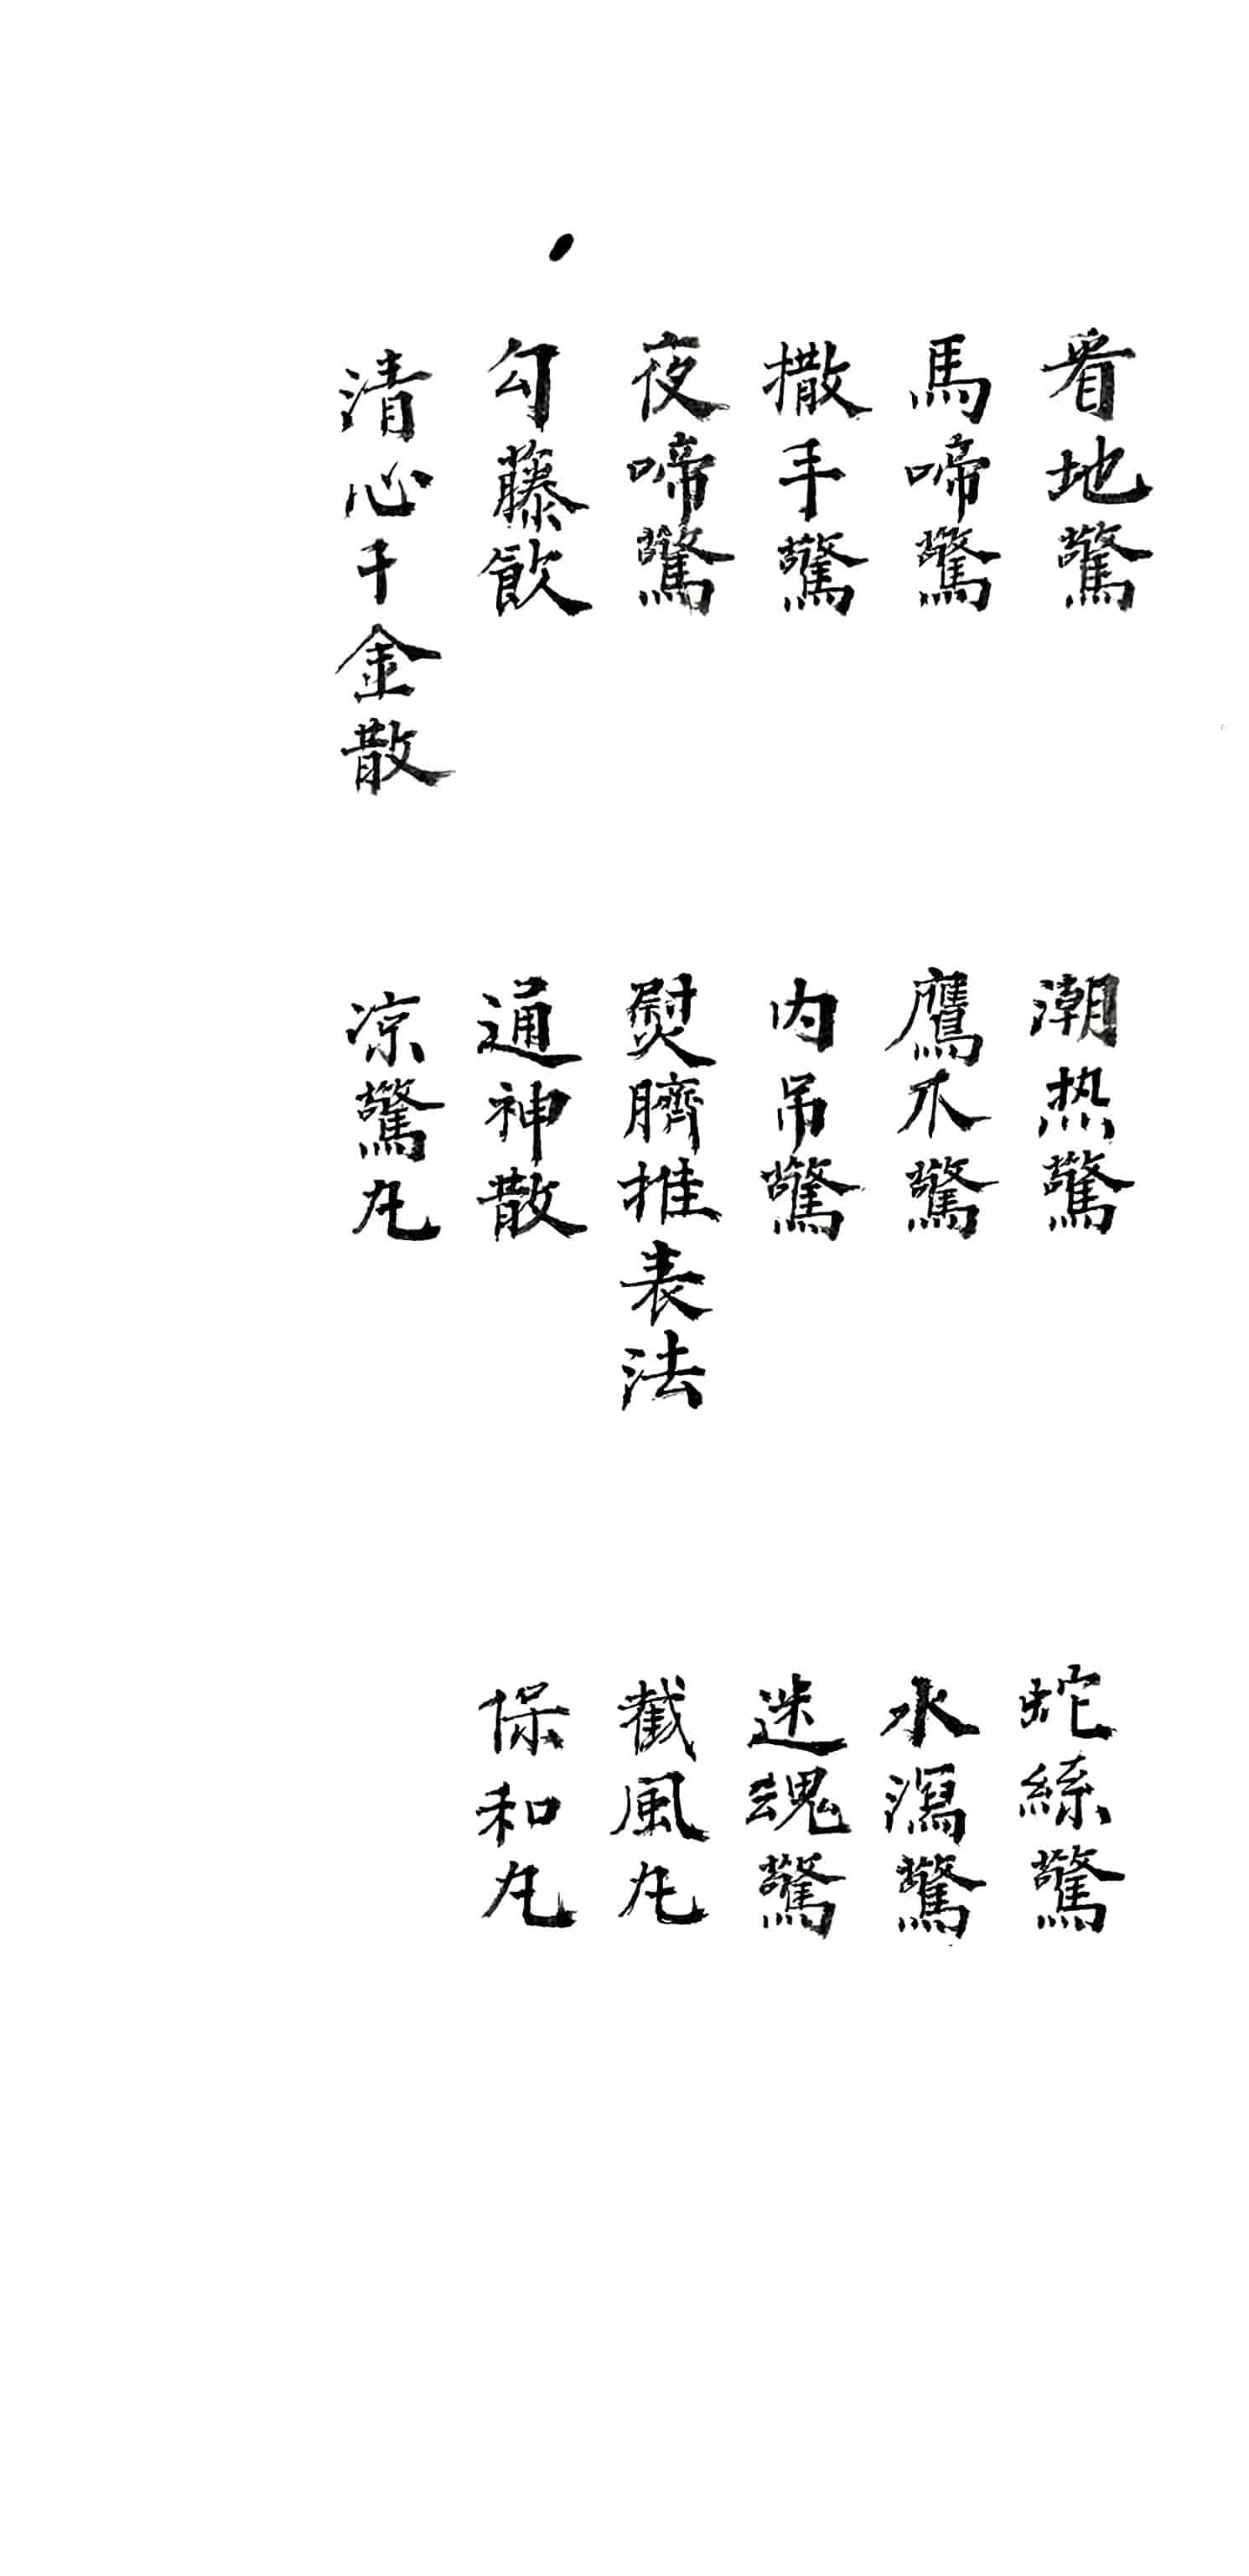 看地驚
潮热驚
蛇絲驚
馬啼驚
鷹爪驚
水瀉驚
撒手驚
内吊驚
迷魂驚
夜啼驚
熨臍推表法
截風丸
勾藤飲
通神散
保和丸
清心千金散
凉驚丸